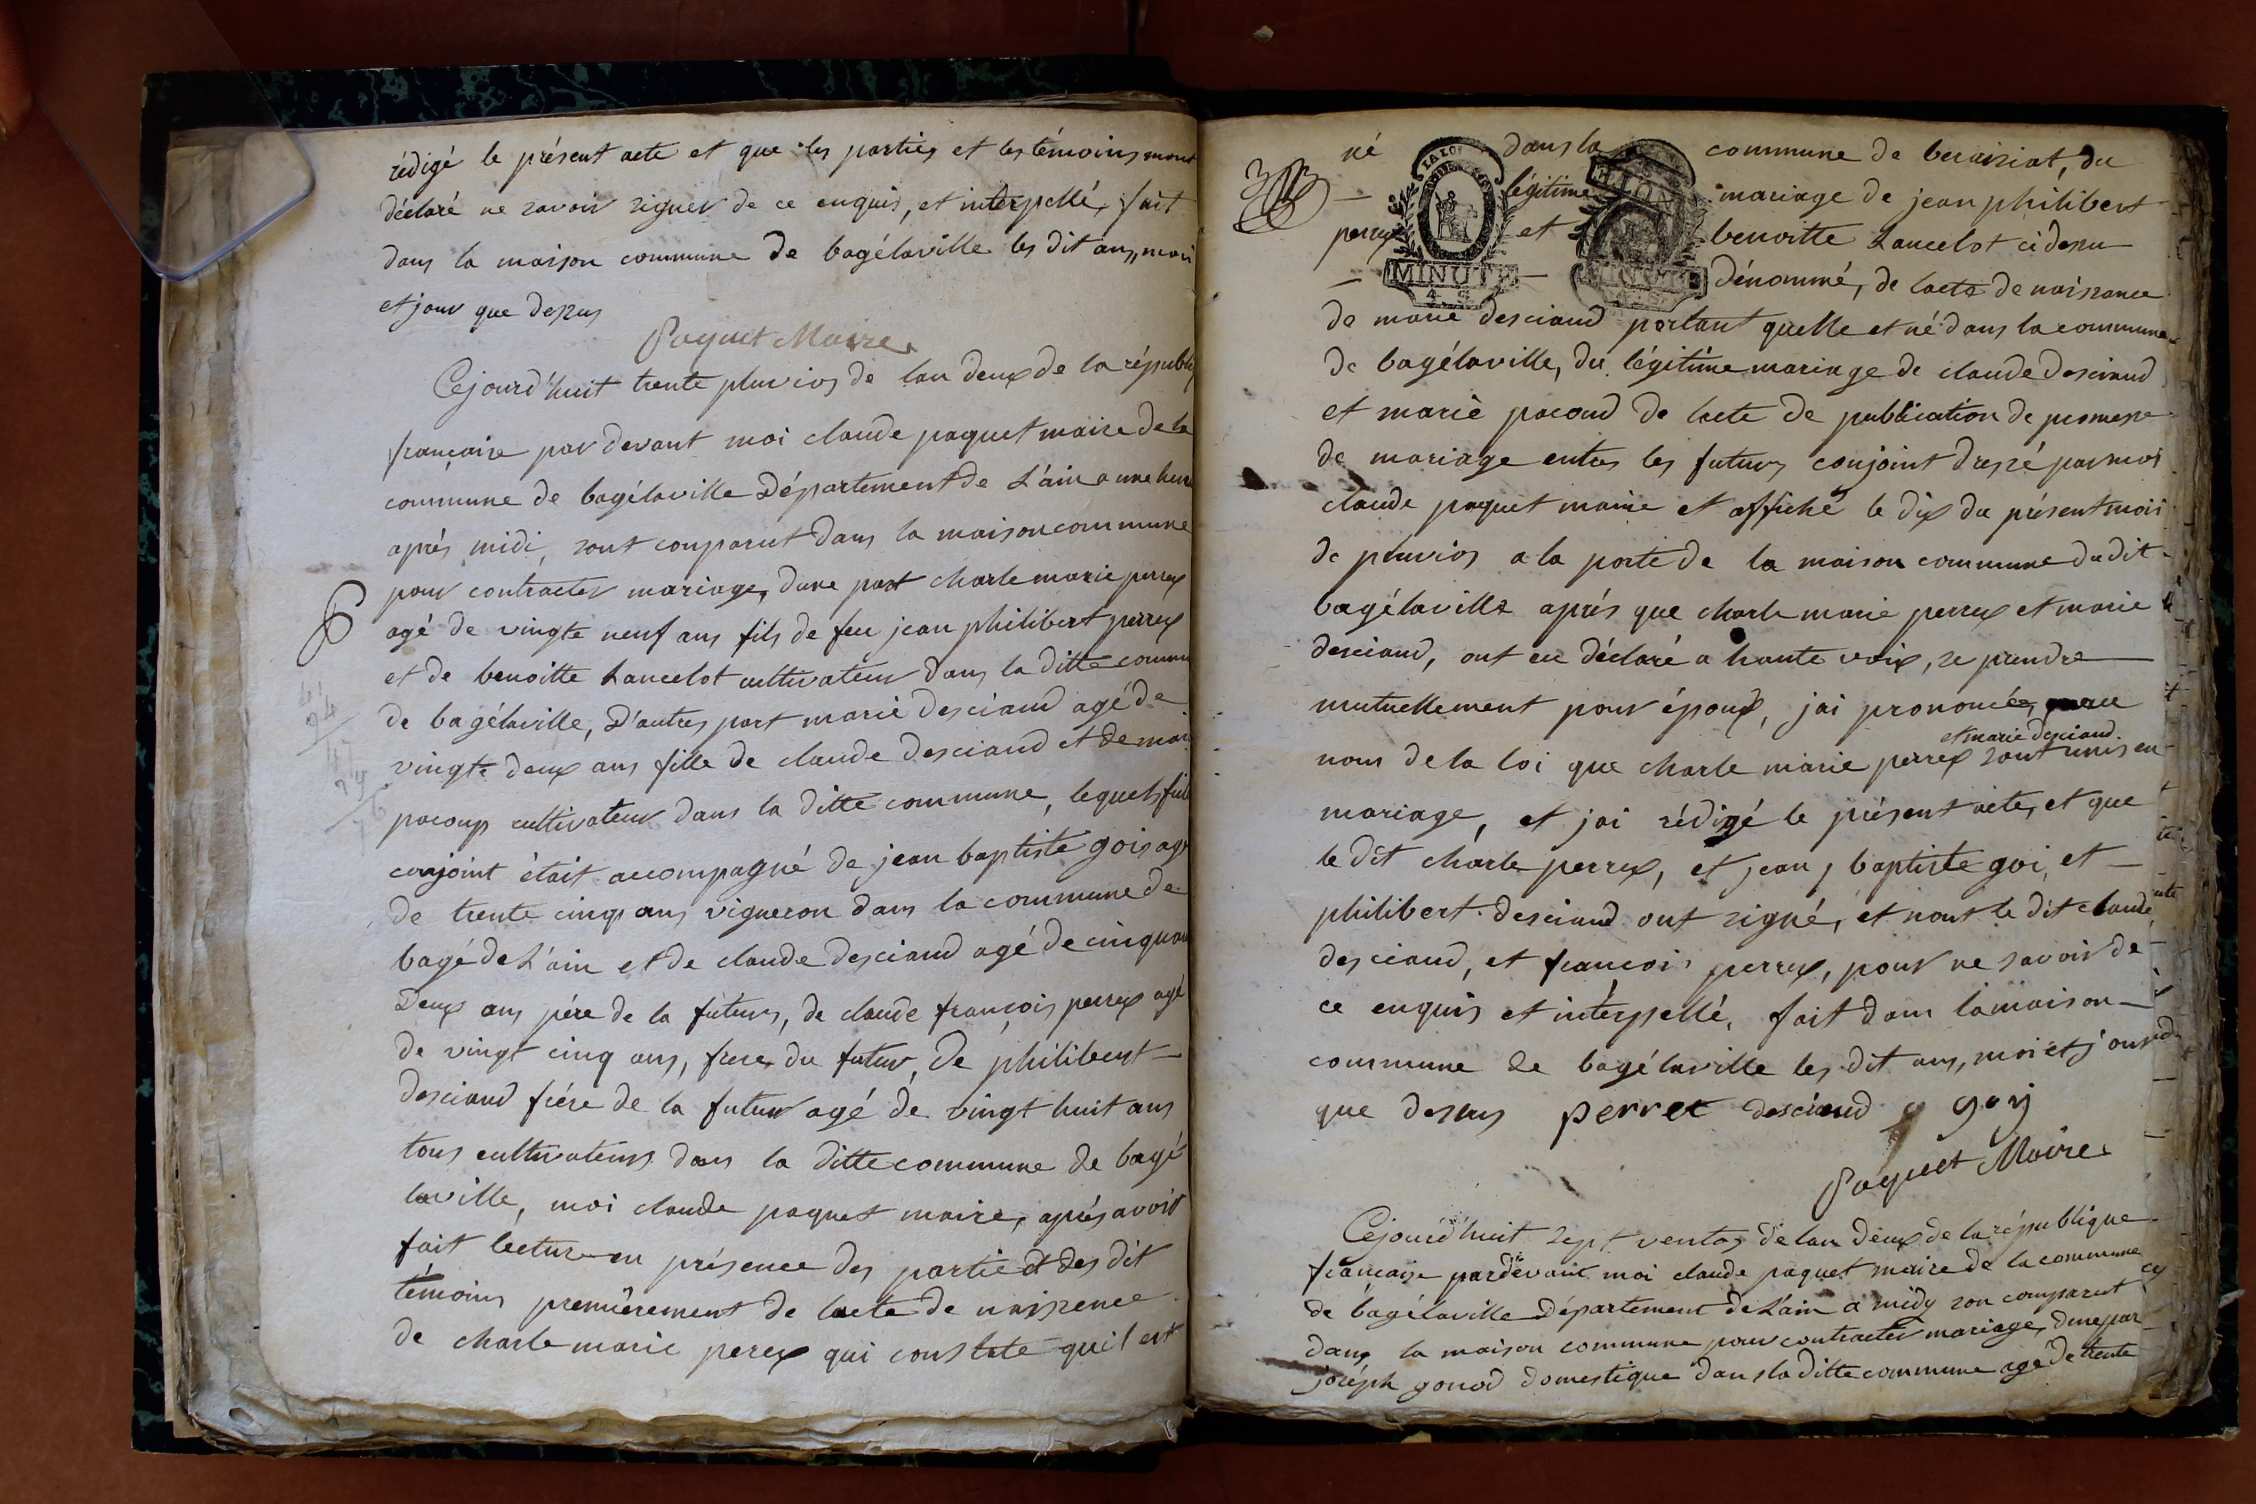 rédigé le présent acte et que les parties et les témoins mont
déclaré ne savoir signer de ce enquis, et interpellé, fait
dans la maison commune de bagélaville les dit ans, moi
et jour que desus
Paquet Maire
Cejourd'huit trente pluvios de lan deux de la républi
française par devant moi claude paquet maire de la
commune de bagélaville Département de L'ain a une heur
aprés midi, sont comparut dans la maison commune
pour contracter mariage, dune part charle marie perrex
agé de vingte neuf ans fils de feu jean philibert perrex
et de benoitte Lancelot cultivateur dans la ditte commu
de bagélaville, D'autres part marie desciaud agé de
vingte deux ans fille de claude desciaud et de mari
pacoup cultivateur dans la ditte commune, lequels futu
conjoint était accompagné de jean baptiste gois agé
de trente cinq ans vigneron dans la commune de
bagé de L'ain et de claude desciaud agé de cinquan
Deux ans pére de la futurs, de claude françois perrex agé
de vingt cinq ans, frere du futur, de philibert
desciaud frére de la futur agé de vingt huit ans
tous cultivateurs dans la ditte commune de bagé
laville, moi claude paquet maire, aprés avoir
fait lecture en présence des partie et des dit
témoins premiérement de lacte de naissence
de charle marie perex qui constate quil est
né dans la commune de beraisiat, du
légitime mariage de jean philibert
perrex et benoitte Lancelot ci desu
dénommé, de lacte de naissance
LA LOI
MINUTE
4. S
MINUTE
de marie desciaud portant quelle et né dans la commune
de bagélaville, du légitime mariage de claude desciaud
et marie pacoud de lacte de publication de promesse
de mariage entre les futurs conjoint dressé par moi
claude paquet maire et affiché le dix du présent mois
de pluvios a la porte de la maison commune dudit
bagélaville aprés que charle marie perrex et marie
desciaud, ont eu déclaré a haute voix, se prendre
mutuellement pour époux, jai prononcée, au
et marie desciaud.
nom de la loi que charle marie perrex sont unis en
mariage, et jai rédigé le présent acte, et que
le dit charle perrex, et jean, baptiste goi, et
philibert desciaud ont signé, et nont le dit claude
desciaud, et françois perrex, pour ne savoir de
ce enquis et interpellé, fait dans la maison
commune de bagélaville les dit ans, moi et jour
que desus perret desciaud goy
Paquet Maire
Cejourd'huit sept ventos de lan deux de la république
française pardevant moi claude paquet maire de la commune
de bagélaville Département de L'ain a midy son comparut
dans la maison commune pour contracter mariage, dune par
joséph gonod domestique dans la ditte commune agé de trente